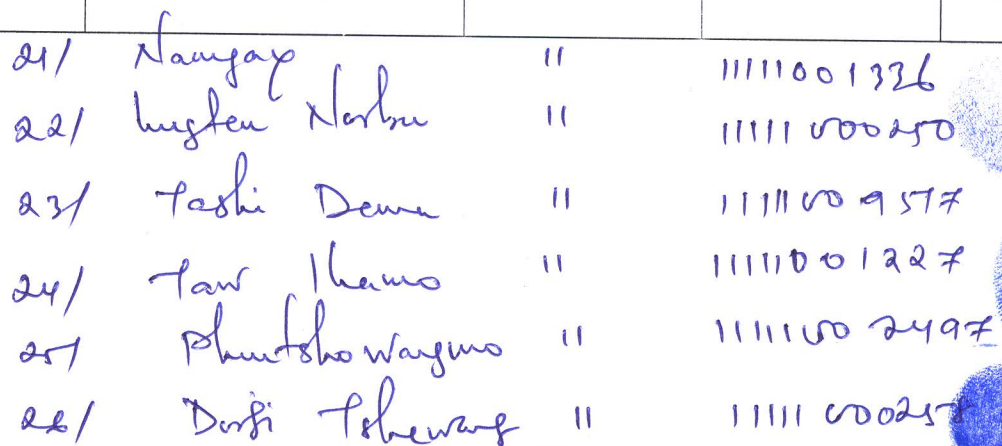 21/ Namgay " 11111001336
22/ Lugten Norbu " 11111000250
23/ Tashi Dema " 11111009517
24/ Taw Lhamo " 11111001227
25/ Phuntsho Wangmo " 11111002497
26/ Dorji Tshewang " 11111000257